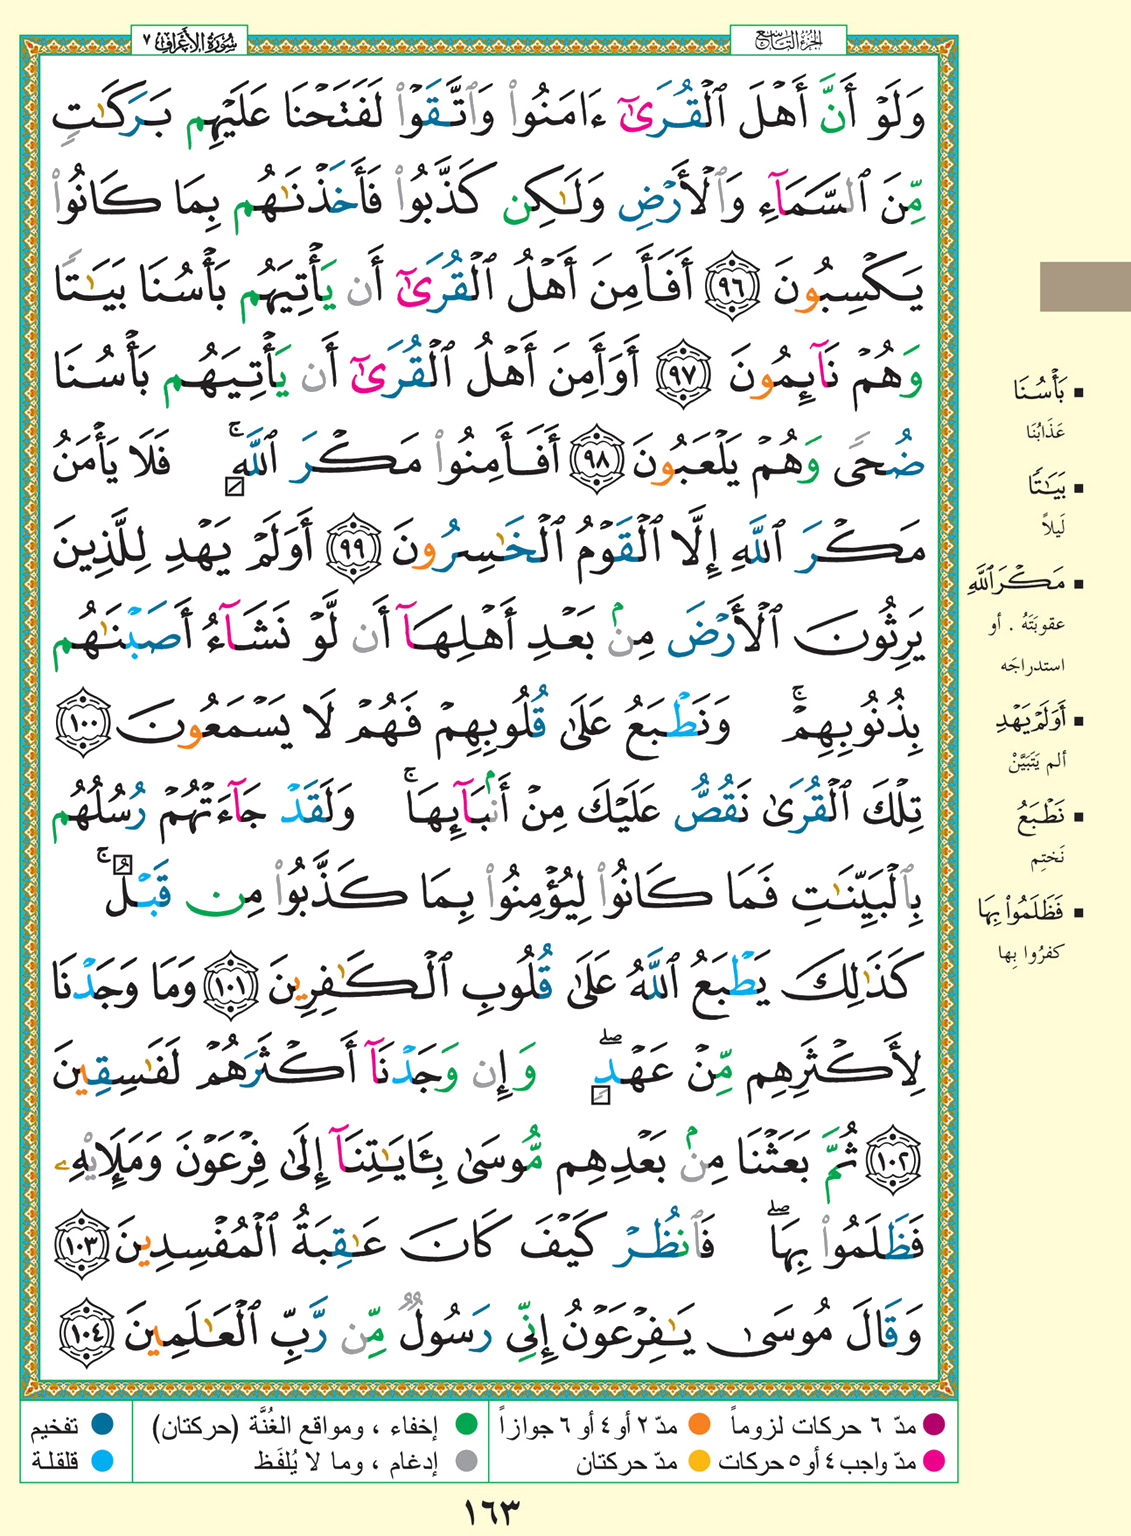 الجزء التاسع
سورة الأعراف ٧
وَلَوْ أَنَّ أَهْلَ ٱلْقُرَىٰٓ ءَامَنُوا۟ وَٱتَّقَوْا۟ لَفَتَحْنَا عَلَيْهِم بَرَكَٰتٍ
مِّنَ ٱلسَّمَآءِ وَٱلْأَرْضِ وَلَٰكِن كَذَّبُوا۟ فَأَخَذْنَٰهُم بِمَا كَانُوا۟
يَكْسِبُونَ ٩٦ أَفَأَمِنَ أَهْلُ ٱلْقُرَىٰٓ أَن يَأْتِيَهُم بَأْسُنَا بَيَٰتًا
وَهُمْ نَآئِمُونَ ٩٧ أَوَأَمِنَ أَهْلُ ٱلْقُرَىٰٓ أَن يَأْتِيَهُم بَأْسُنَا
ضُحًى وَهُمْ يَلْعَبُونَ ٩٨ أَفَأَمِنُوا۟ مَكْرَ ٱللَّهِ ۚ فَلَا يَأْمَنُ
مَكْرَ ٱللَّهِ إِلَّا ٱلْقَوْمُ ٱلْخَٰسِرُونَ ٩٩ أَوَلَمْ يَهْدِ لِلَّذِينَ
يَرِثُونَ ٱلْأَرْضَ مِنۢ بَعْدِ أَهْلِهَآ أَن لَّوْ نَشَآءُ أَصَبْنَٰهُم
بِذُنُوبِهِمْ ۚ وَنَطْبَعُ عَلَىٰ قُلُوبِهِمْ فَهُمْ لَا يَسْمَعُونَ ١٠٠
تِلْكَ ٱلْقُرَىٰ نَقُصُّ عَلَيْكَ مِنْ أَنۢبَآئِهَا ۚ وَلَقَدْ جَآءَتْهُمْ رُسُلُهُم
بِٱلْبَيِّنَٰتِ فَمَا كَانُوا۟ لِيُؤْمِنُوا۟ بِمَا كَذَّبُوا۟ مِن قَبْلُ ۚ
كَذَٰلِكَ يَطْبَعُ ٱللَّهُ عَلَىٰ قُلُوبِ ٱلْكَٰفِرِينَ ١٠١ وَمَا وَجَدْنَا
لِأَكْثَرِهِم مِّنْ عَهْدٍ ۖ وَإِن وَجَدْنَآ أَكْثَرَهُمْ لَفَٰسِقِينَ
١٠٢ ثُمَّ بَعَثْنَا مِنۢ بَعْدِهِم مُّوسَىٰ بِـَٔايَٰتِنَآ إِلَىٰ فِرْعَوْنَ وَمَلَإِي۟هِۦ
فَظَلَمُوا۟ بِهَا ۖ فَٱنظُرْ كَيْفَ كَانَ عَٰقِبَةُ ٱلْمُفْسِدِينَ ١٠٣
وَقَالَ مُوسَىٰ يَٰفِرْعَوْنُ إِنِّى رَسُولٌ مِّن رَّبِّ ٱلْعَٰلَمِينَ ١٠٤
▪ بَأْسُنَا
عَذَابُنَا
▪ بَيَٰتًا
لَيلاً
▪ مَكْرَ ٱللَّهِ
عقوبَتَهُ . أو
استدراجَه
▪ أَوَلَمْ يَهْدِ
ألم يَتَبَيَّنْ
▪ نَطْبَعُ
نَختِم
▪ فَظَلَمُوا۟ بِهَا
كفرُوا بِها
مدّ ٦ حركات لزوماً
مدّ ٢ أو ٤ أو ٦ جوازاً
إخفاء ، ومواقع الغُنَّة (حركتان)
تفخيم
مدّ واجب ٤ أو ٥ حركات
مدّ حركتان
إدغام ، وما لا يُلفَظ
قلقلة
١٦٣